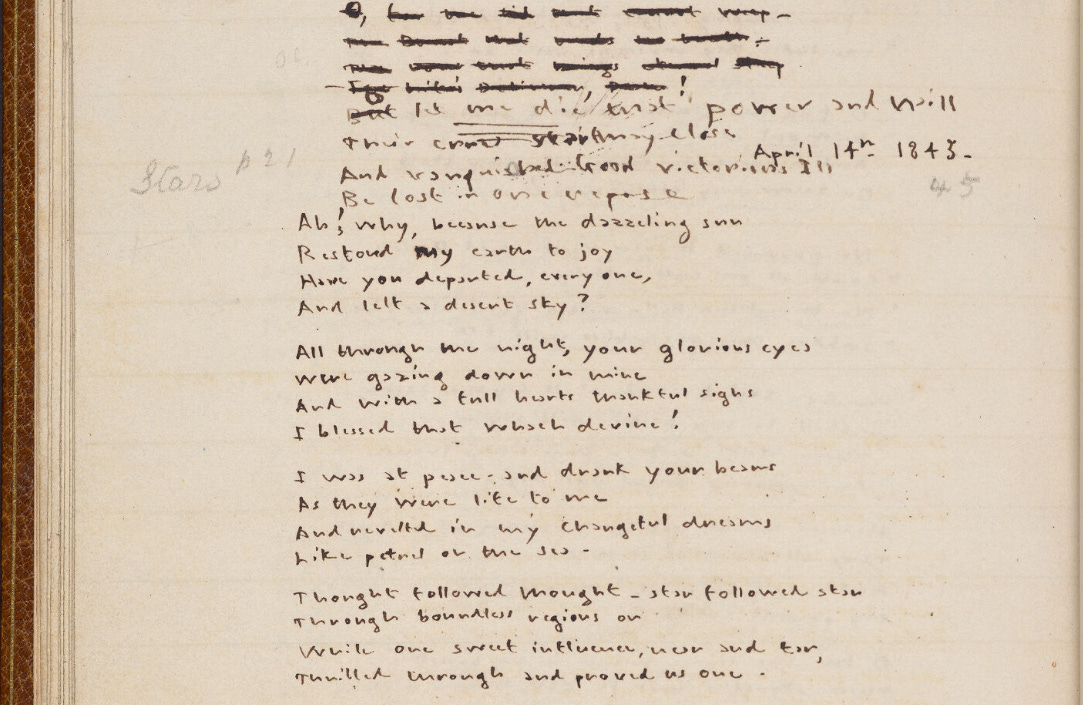 O, for the
O let me die, that power and will
Their cruel strife may close
April 14th 1845.
Stars p 21
And vanquished Good victorious Ill
45
Be lost in one repose
Ah! why, because the dazzeling sun
Restored my earth to joy
Have you departed, every one,
And left a desert sky?
All through the night, your glorious eyes
Were gazing down in mine
And with a full hearts thankful sighs
I blessed that watch devine!
I was at peace - and drank your beams
As they were life to me
And revelled in my changeful dreams
Like petrel on the sea -
Thought followed thought - star followed star
Through boundless regions on
While one sweet influence, near and far,
Thrilled through and proved us one -